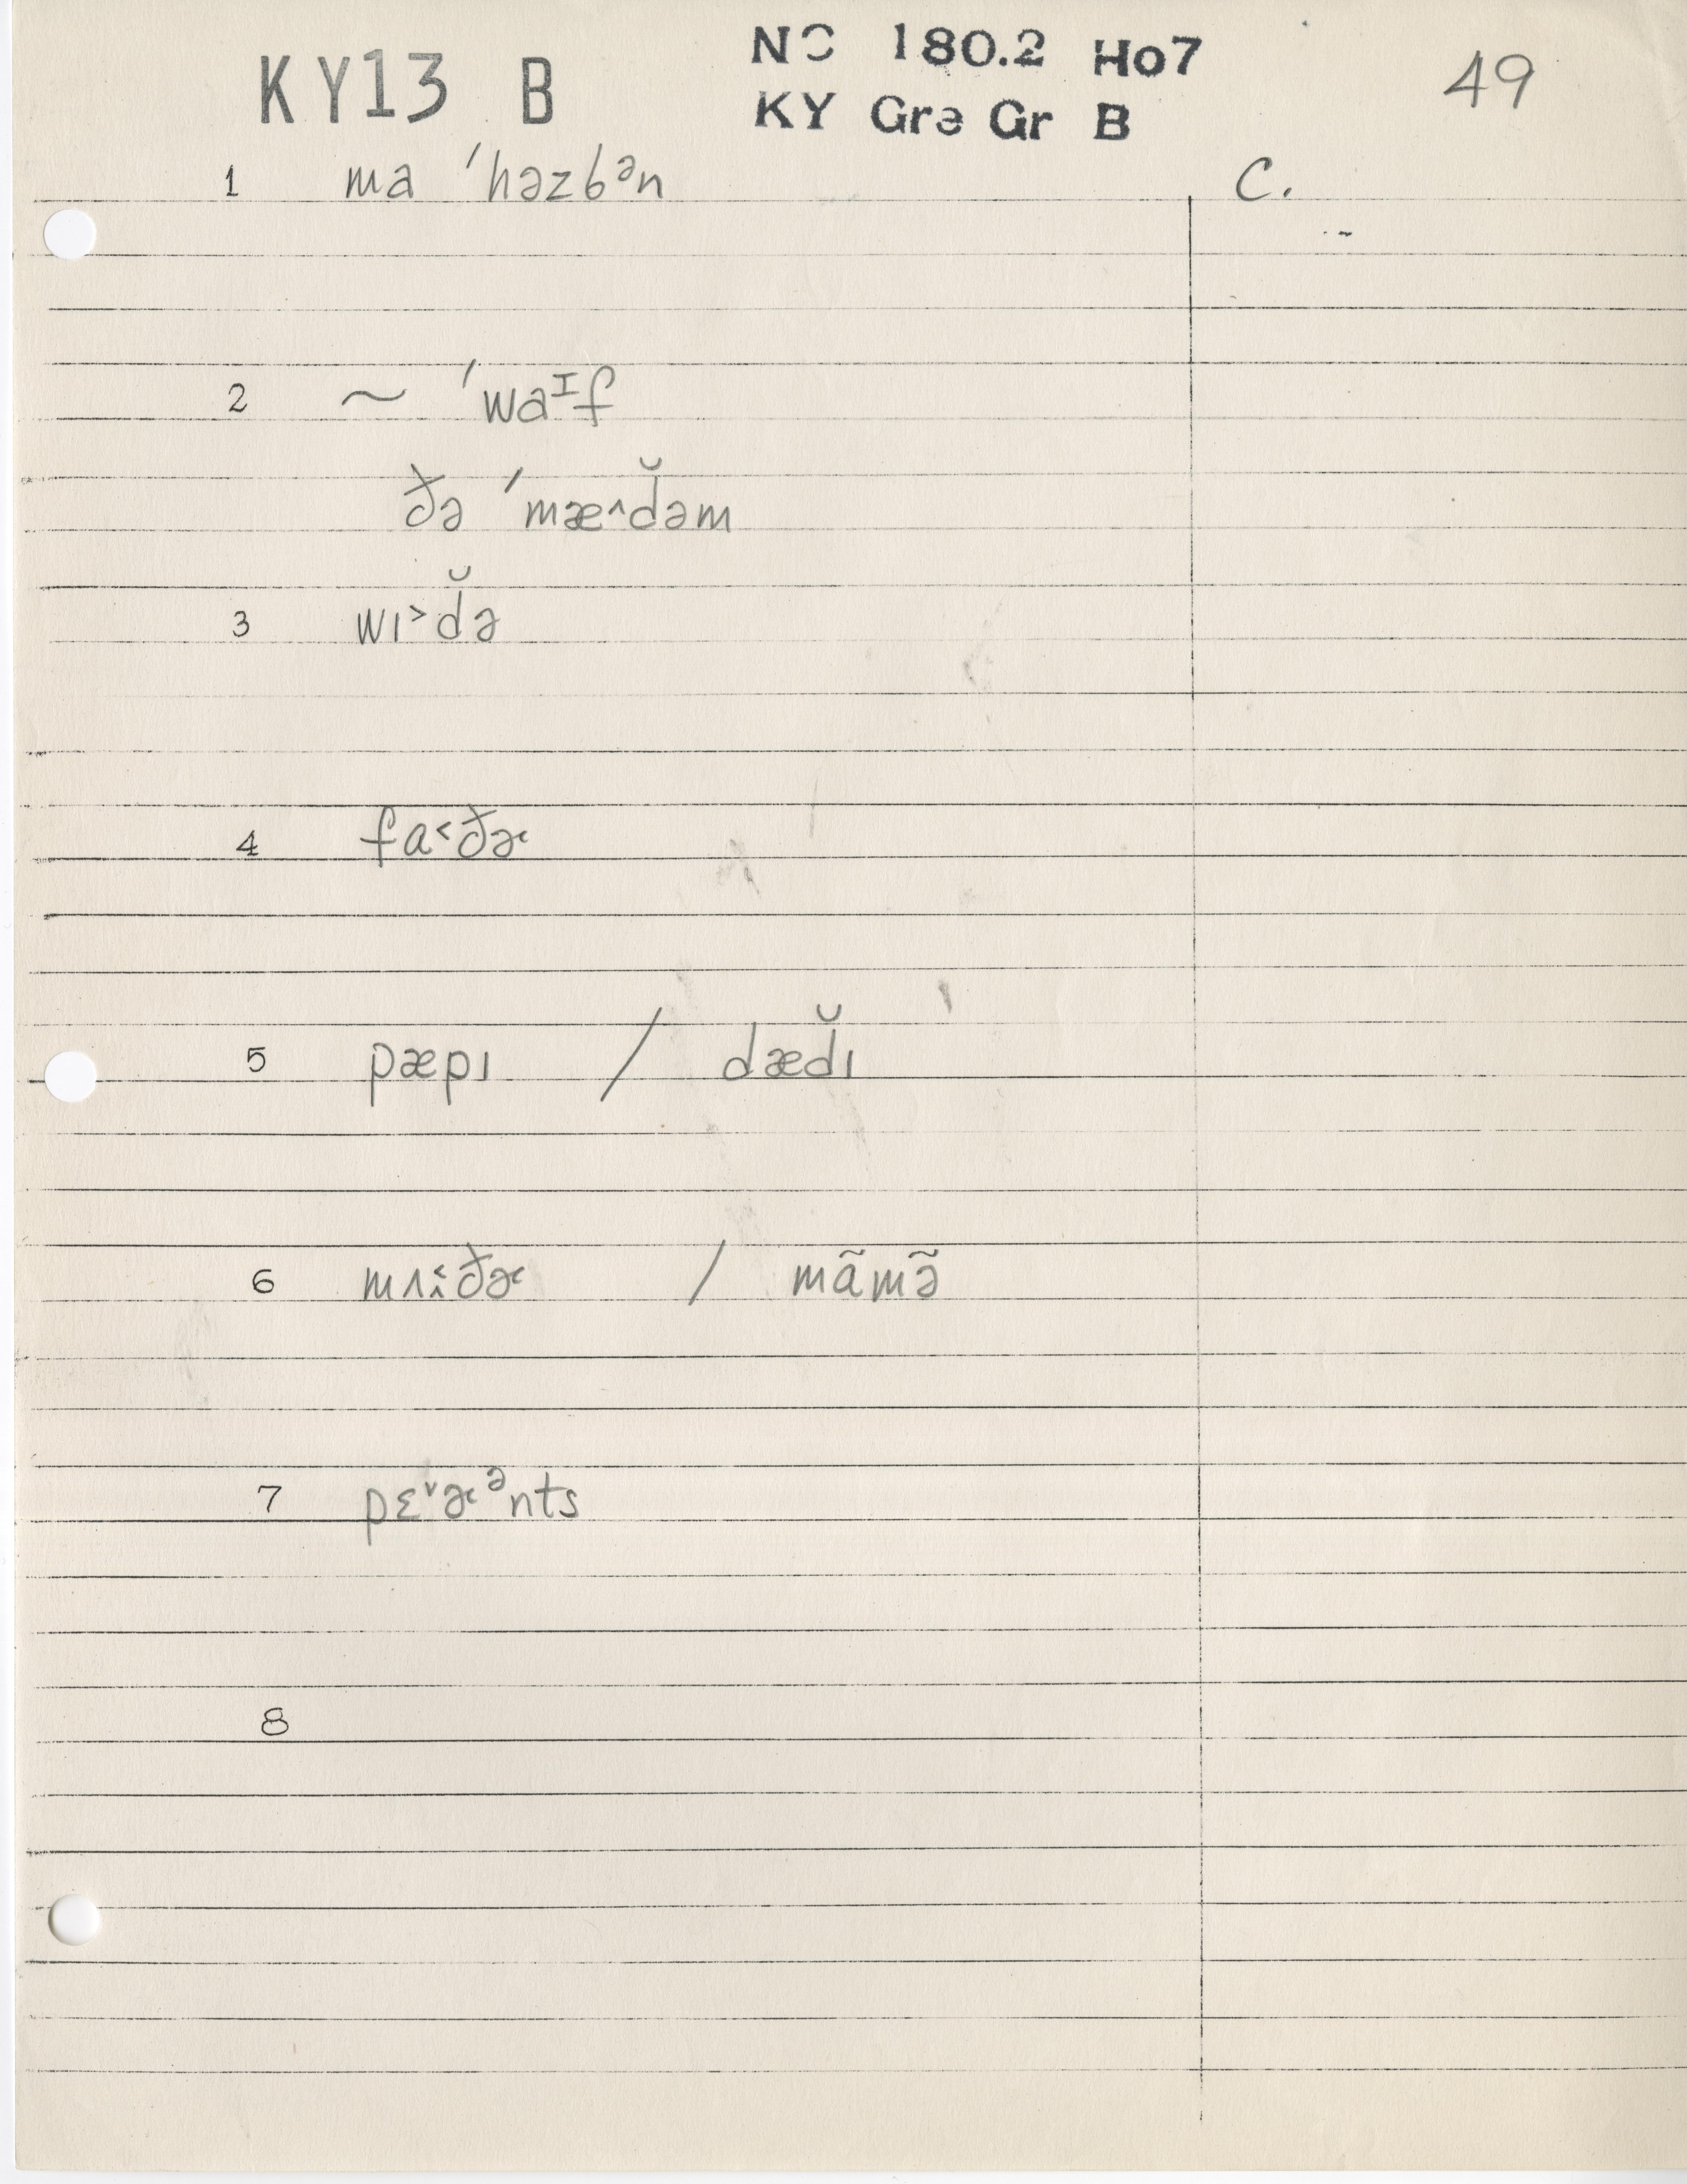 KY13 B
NC 180.2 Ho7
KY Grə Gr B
49
1 ma ˈhəzbᵊn C.
2 ~ ˈwaᶦf
ðə ˈmæ˄d̆əm
3 wɪ˃d̆ə
4 fɑ˂ðɚ
5 pæpɪ / dæd̆ɪ
6 mʌ˂˄ðɚ / mãmə̃
7 pɛ˅ɚᵊnts
8